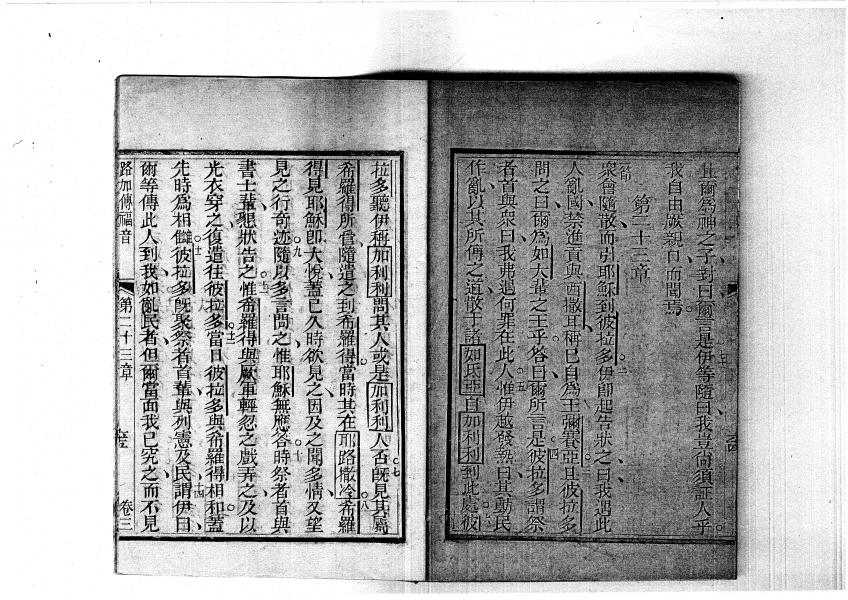 且爾為神之子對曰爾言是伊等隨曰我豈尙須証人乎
我自由厥親口而聞焉
第二十三章
衆會隨散而引耶穌到彼拉多伊卽起吿狀之曰我遇此
人亂國禁進貢與西撒耳稱已自為王彌賽亞且彼拉多
問之曰爾為如大輩之王乎答曰爾所言是彼拉多謂祭
者首與衆曰我弗遇何罪在此人惟伊越發熱曰其動民
作亂以其所傳之道散于諸如氐亞自加利利到此處彼
拉多聽伊稱加利利問其人或是加利利人否旣見其屬
希羅得所管隨遣之到希羅得當時其在耶路撒冷希羅
得見耶穌卽大悅蓋已久時欲見之因及之聞多情又望
見之行奇迹隨以多言問之惟耶穌無應答時祭者首與
書士輩懇狀吿之惟希羅得與厥軍輕忽之戲弄之及以
光衣穿之復遣往彼拉多當日彼拉多與希羅得相和蓋
先時為相讎彼拉多旣聚祭者首輩與列憲及民謂伊曰
爾等傳此人到我如亂民者但爾當面我已究之而不見
路加傳福音 第二十三章 卷三